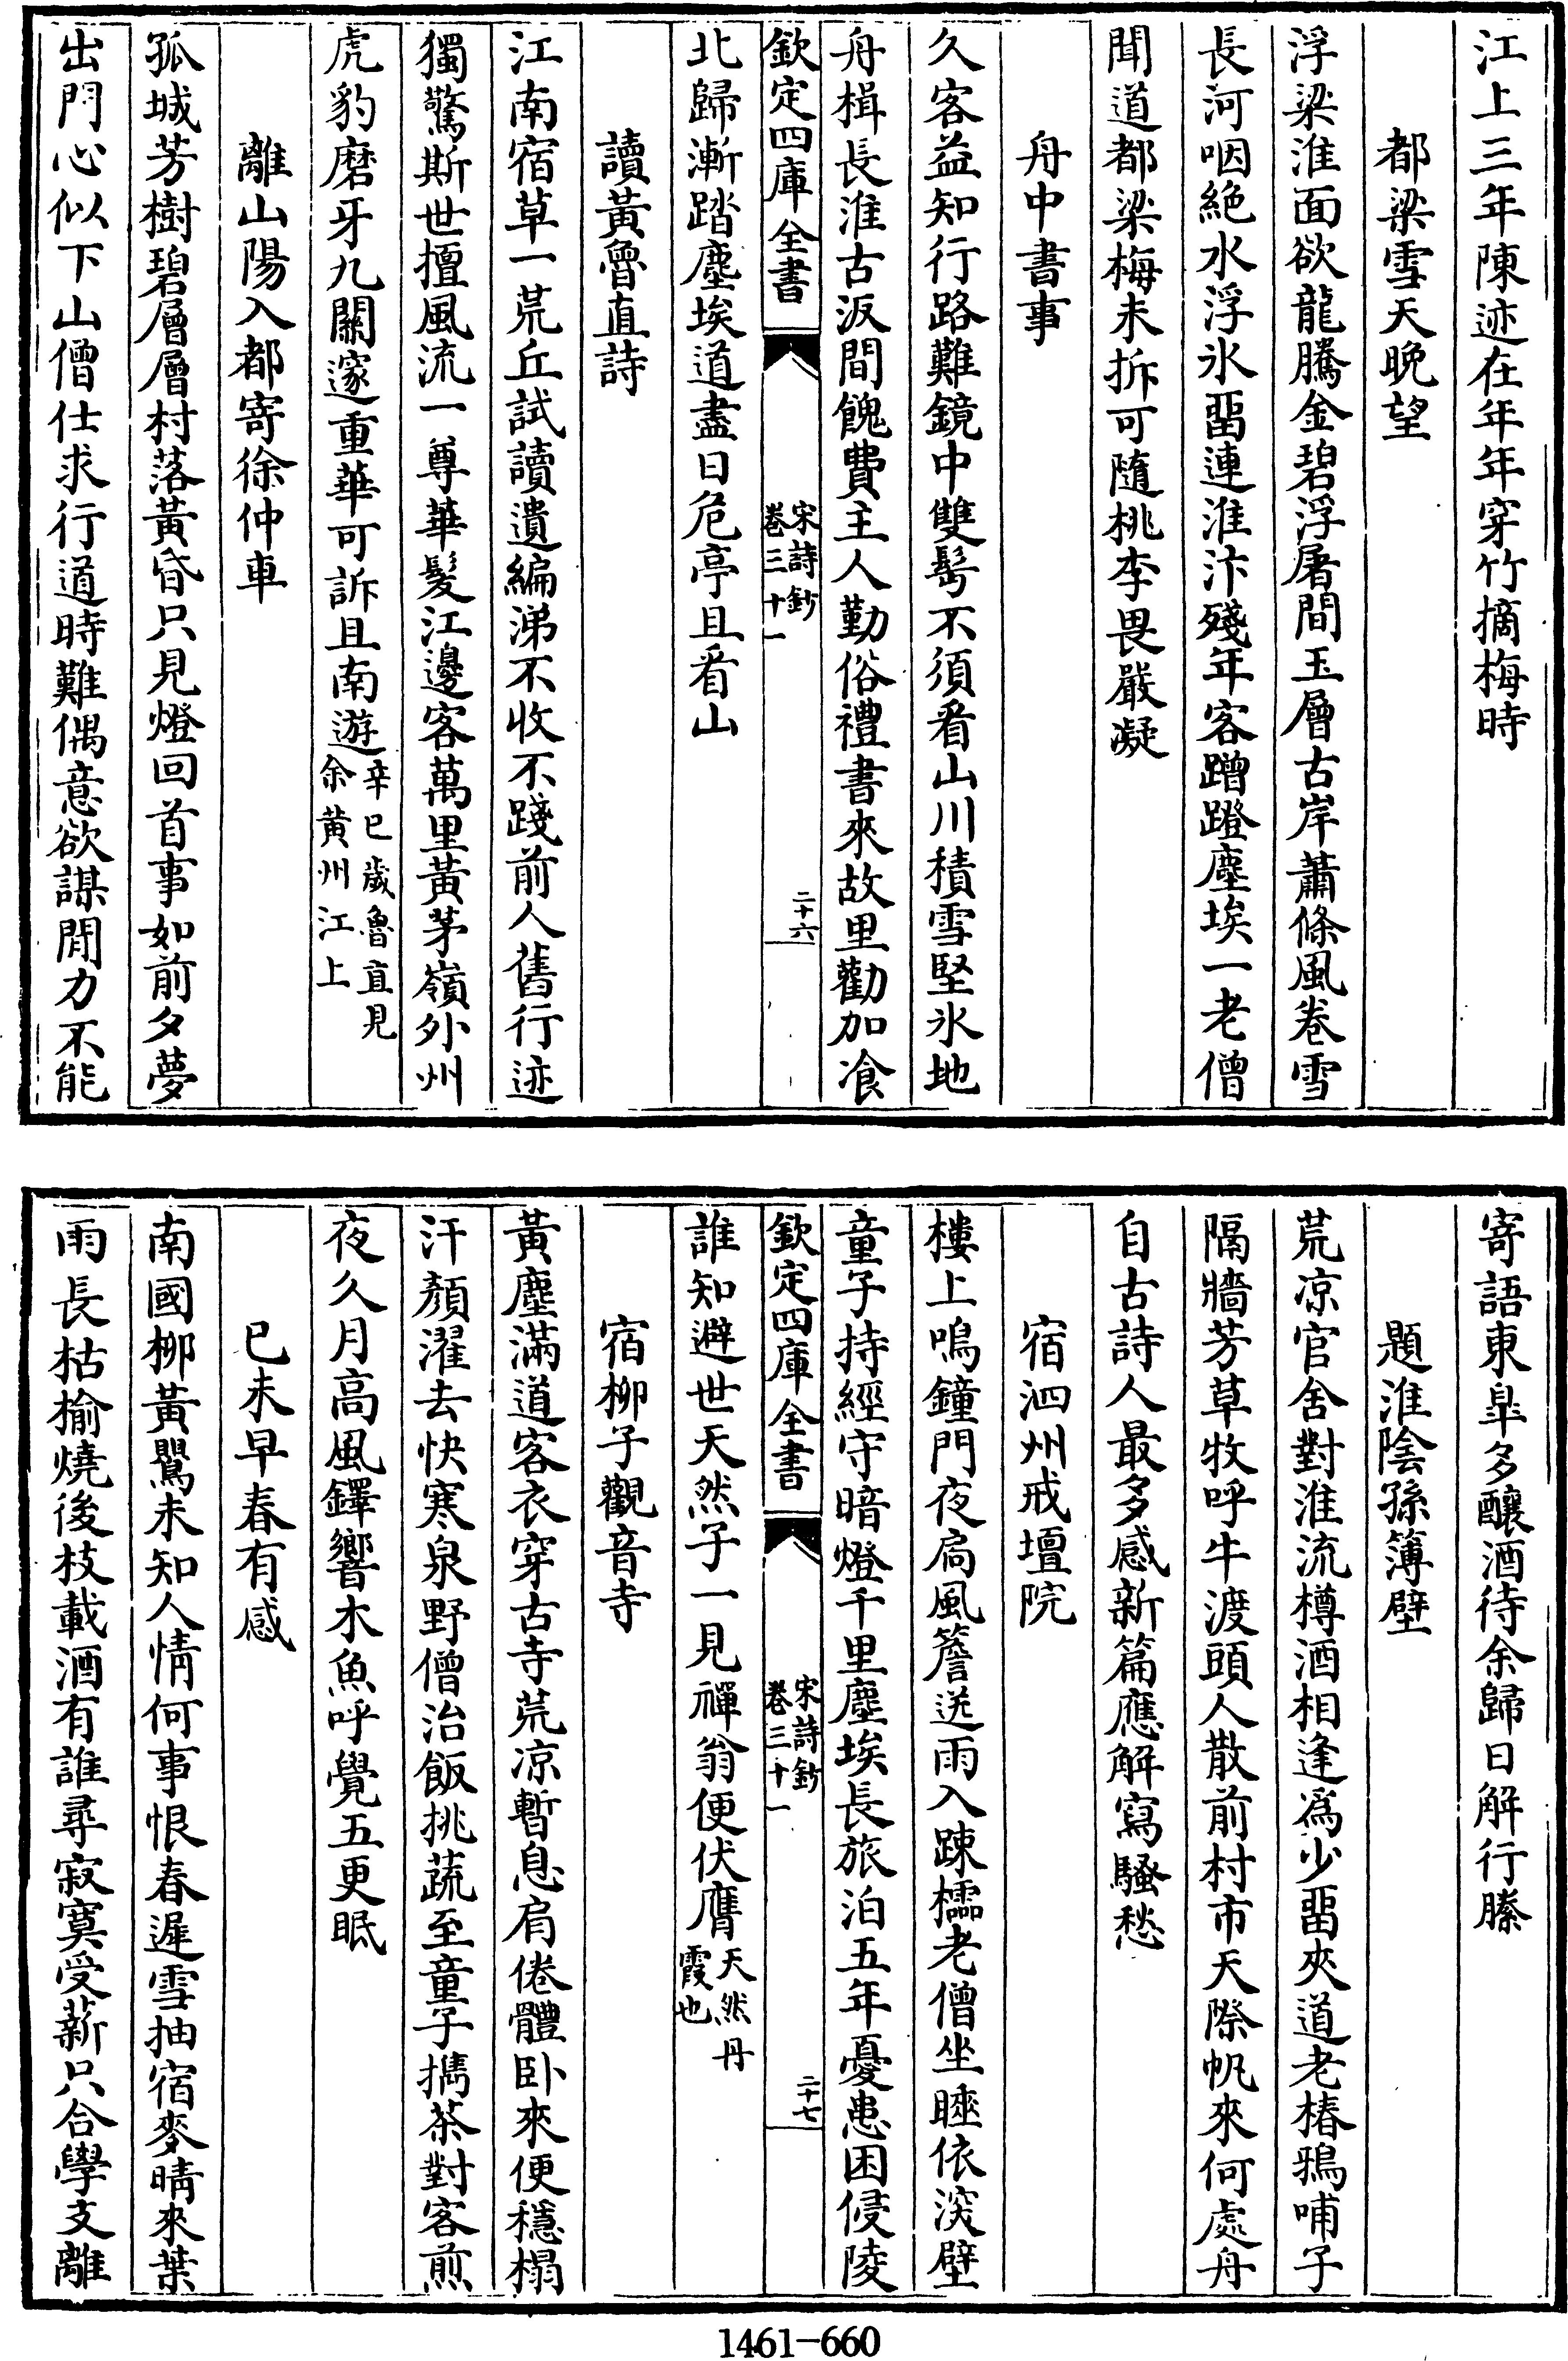 江上三年陳迹在年年穿竹摘梅時
都梁雪天晩望
浮梁淮面欲龍騰金碧浮屠間玉層古岸蕭條風卷雪
長河咽絶水浮氷畱連淮汴殘年客蹭蹬塵埃一老僧
聞道都梁梅未拆可隨桃李畏嚴凝
舟中書事
久客益知行路難鏡中雙髩不須㸔山川積雪堅氷地
舟楫長淮古汳間餽費主人勤俗禮書來故里勸加飡
欽定四庫全書
宋詩鈔
卷三十一
二十六
北歸漸踏塵埃道盡日危亭且㸔山
讀黃魯直詩
江南宿草一荒丘試讀遺編涕不收不踐前人舊行迹
獨驚斯世擅風流一尊華髪江邊客萬里黃茅嶺外州
虎豹磨牙九關邃重華可訴且南遊辛巳歲魯直見
余黃州江上
離山陽入都寄徐仲車
孤城芳樹碧層層村落黃昏只見燈回首事如前夕夢
出門心似下山僧仕求行道時難偶意欲謀閒力不能
寄語東臯多釀酒待余歸日解行縢
題淮陰孫簿壁
荒凉官舍對淮流樽酒相逢爲少畱夾道老椿鴉哺子
隔牆芳草牧呼牛渡頭人散前村市天際帆來何處舟
自古詩人最多感新篇應解寫騷愁
宿泗州戒壇院
樓上鳴鐘門夜扃風簷送雨入踈櫺老僧坐睡依深壁
童子持經守暗燈千里塵埃長旅泊五年憂患困侵陵
欽定四庫全書
宋詩鈔
卷三十一
二十七
誰知避世天然子一見禪翁便伏膺天然丹
霞也
宿柳子觀音寺
黃塵滿道客衣穿古寺荒凉暫息肩倦體卧來便穩榻
汗顏濯去快寒泉野僧治飯挑蔬至童子攜茶對客煎
夜久月高風鐸響木魚呼覺五更眠
已未早春有感
南國柳黃鸎未知人情何事恨春遲雪抽宿麥晴來葉
雨長枯榆燒後枝載酒有誰尋寂寞受薪只合學支離
1461-660